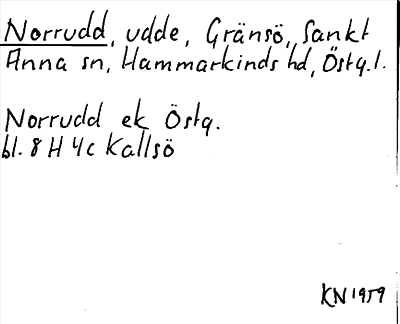 Norrudd, udde, Gränsö, Sankt
Anna sn, Hammarkinds hd, Östg.l.
Norrudd ek Östg.
bl. 8 H 4c Kallsö
KN 1959